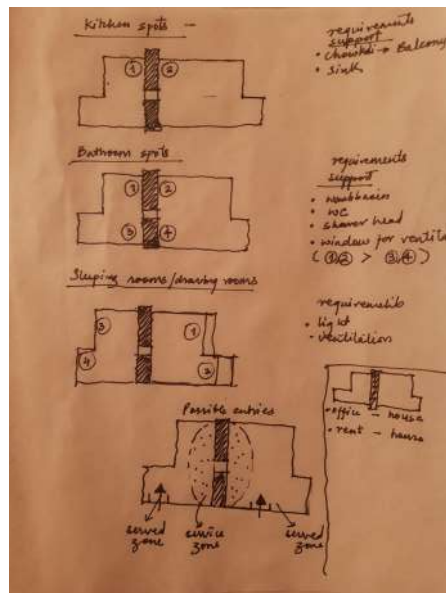 Kitchen spots —
① ②
requirements
support
• Chowkdi → Balcony
• Sink
Bathroom spots
① ②
③ ④
requirements
support
• washbasin
• WC
• shower head
• window for ventila
(①,② > ③,④)
Sleeping rooms/drawing rooms
③ ①
④ ②
requirements
• light
• ventilation
Possible entries
served
zone
service
zone
served
zone
• office — house
• rent — house